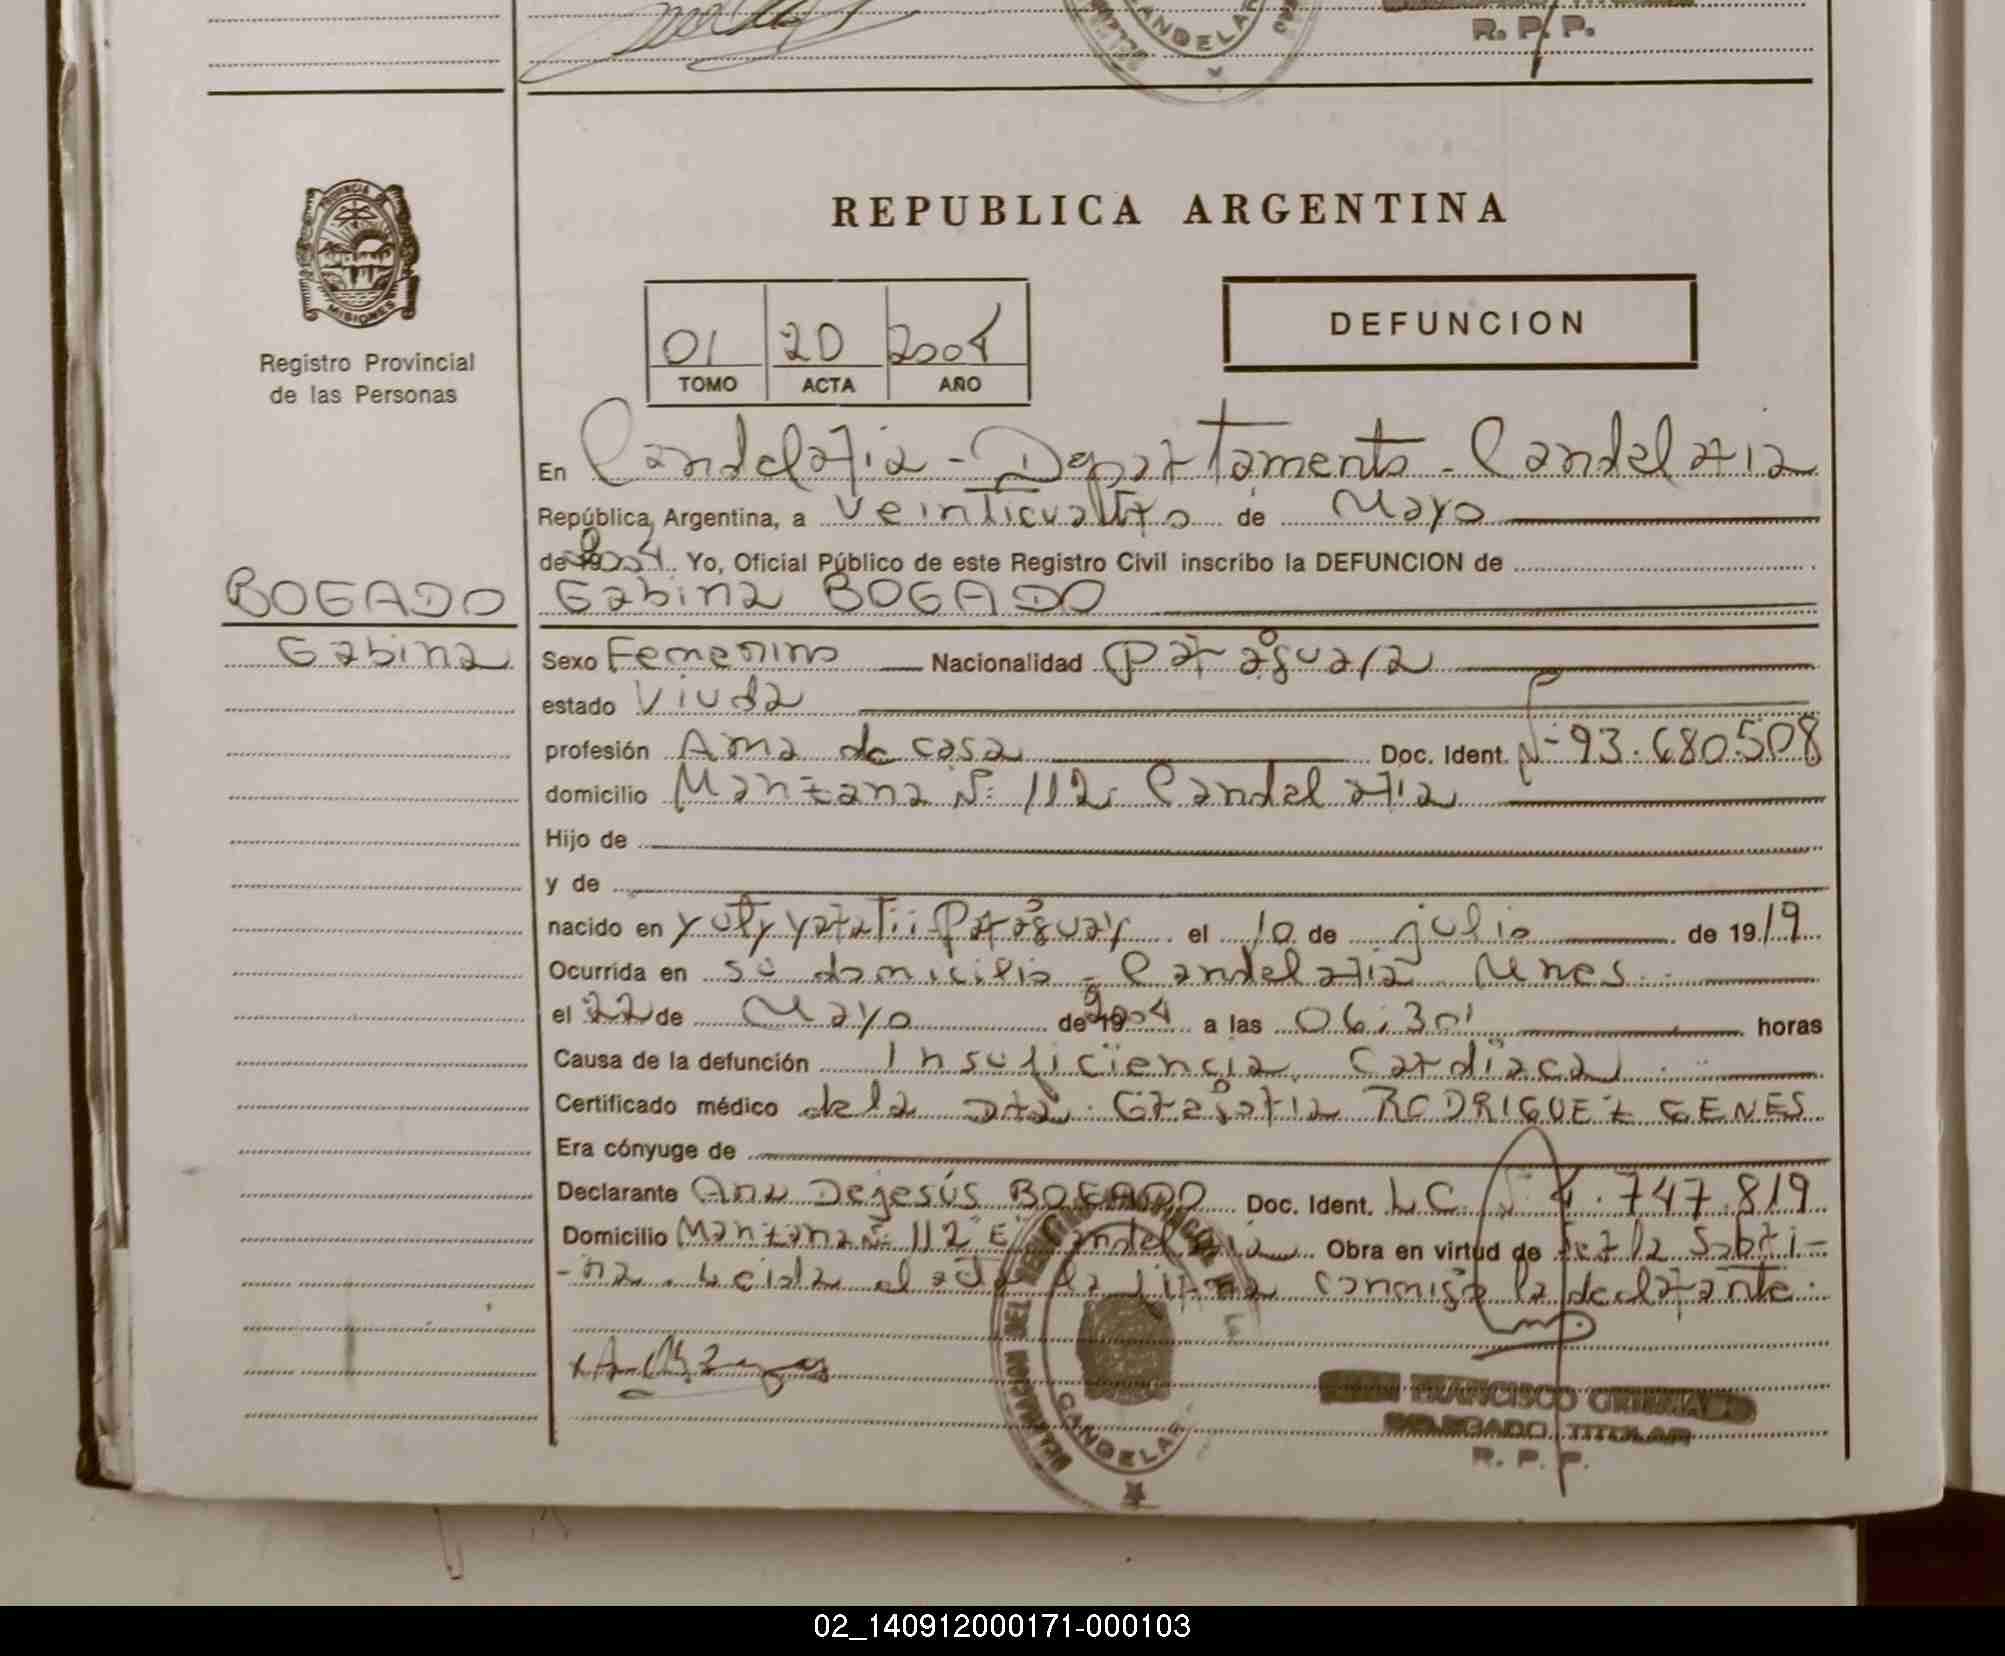 CANDELAR
R. P. P.
PROVINCIA DE
MISIONES
REPUBLICA ARGENTINA
Registro Provincial
de las Personas
01 20 2004
TOMO ACTA AÑO
DEFUNCION
En Candelaria - Departamento - Candelaria
República Argentina, a veinticuatro de Mayo
de 2004. Yo, Oficial Público de este Registro Civil inscribo la DEFUNCION de
BOGADO Gabina BOGADO
Gabina Sexo Femenino Nacionalidad Paraguaya
estado Viuda
profesión Ama de casa Doc. Ident. Nº 93.680.508
domicilio Manzana Nº 112. Candelaria
Hijo de
y de
nacido en Yuty yatatii - Paraguay el 10 de julio de 1919
Ocurrida en su domicilio - Candelaria Mnes.
el 22 de Mayo de 2004 a las 06:30' horas
Causa de la defunción Insuficiencia Cardiaca
Certificado médico de la Dra. Graciela RODRIGUEZ GENES
Era cónyuge de
Declarante Ana Dejesús BOGADO Doc. Ident. LC. Nº 4.747.819
Domicilio Manzana Nº 112 "E" Candelaria Obra en virtud de ser la sobri-
-na. Leida el acta la firma conmigo la declarante.
CANDELAR
FRANCISCO
DELEGADO TITULAR
R. P. P.
02_140912000171-000103